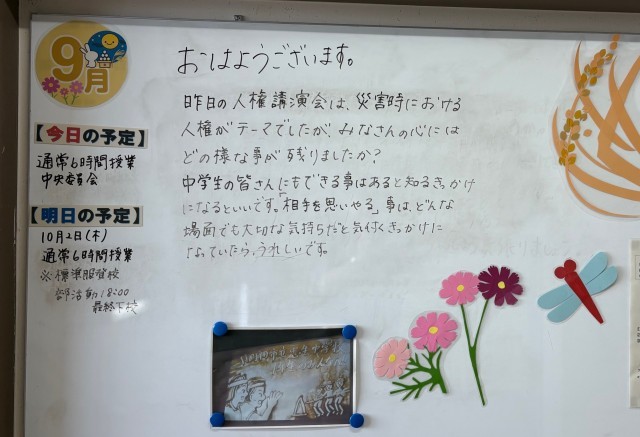 9月
おはようございます。
昨日の人権講演会は、災害時における
人権がテーマでしたが、みなさんの心には
どの様な事が残りましたか?
中学生の皆さんにもできる事はあると知るきっかけ
になるといいです。「相手を思いやる」事は、どんな
場面でも大切な気持ちだと気付くきっかけに
なっていたら、うれしいです。
【今日の予定】
通常6時間授業
中央委員会
【明日の予定】
10月2日(木)
通常6時間授業
※標準服登校
部活動18:00
最終下校